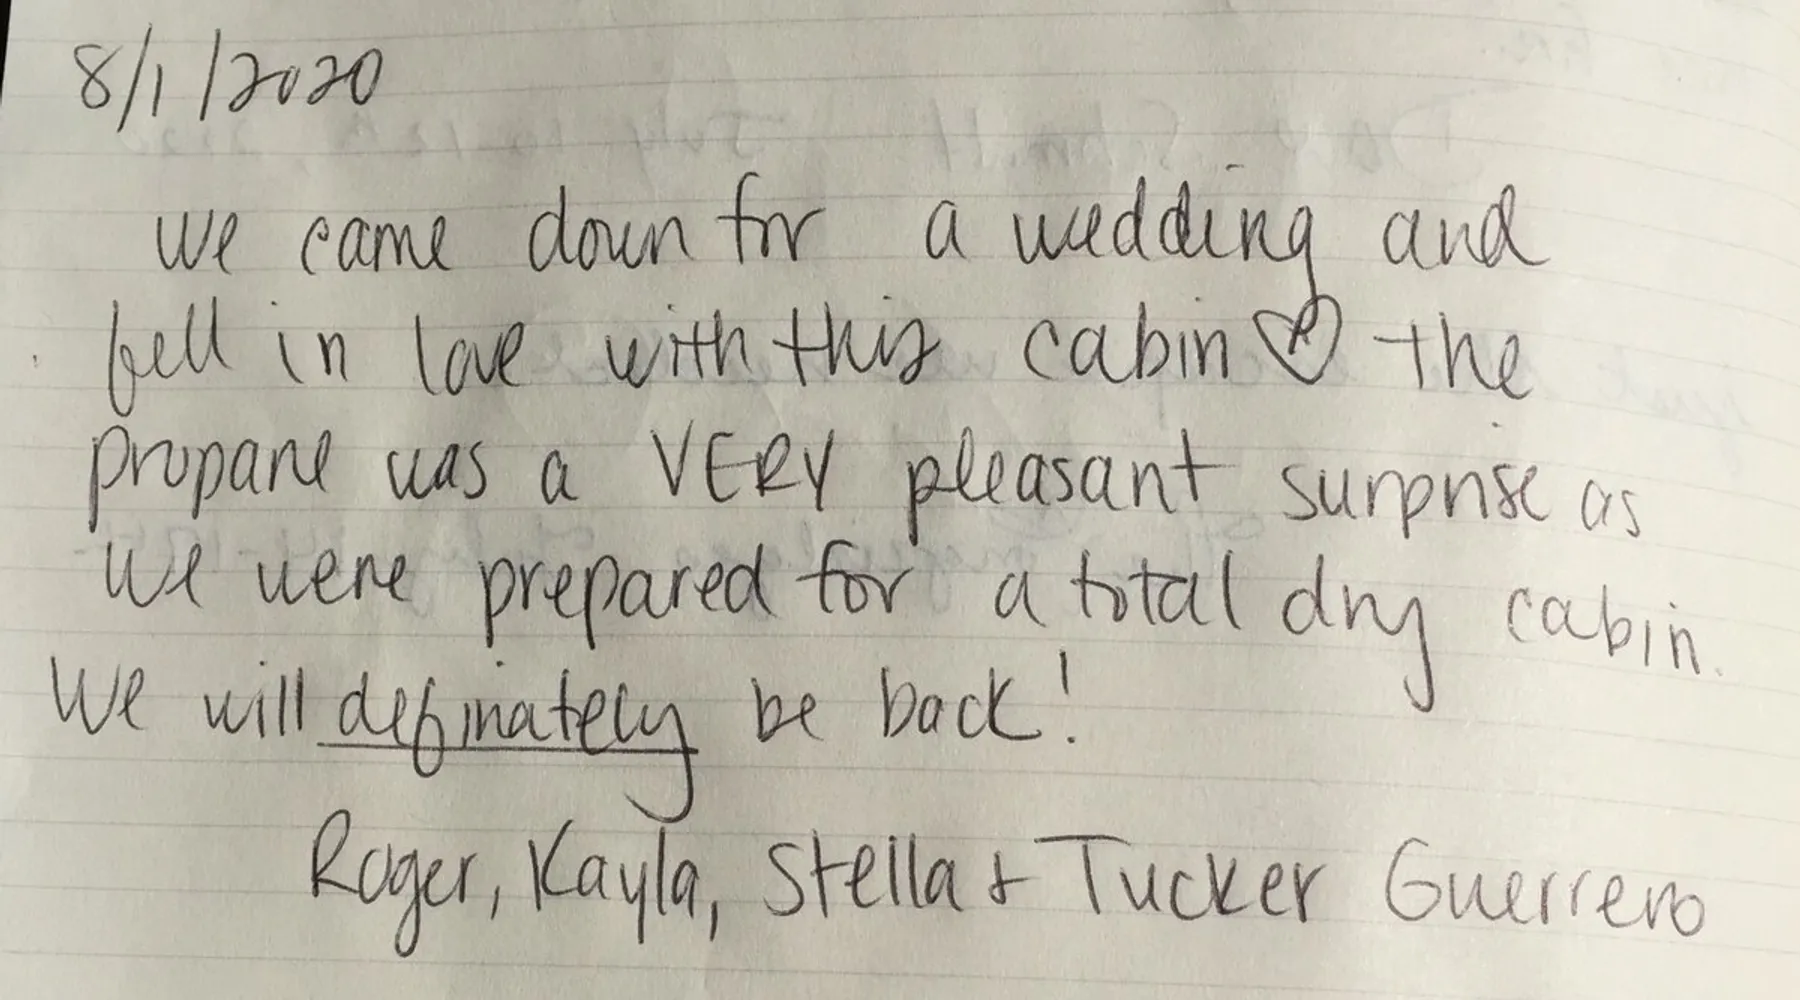 8/1/2020
We came down for a wedding and
fell in love with this cabin ♡ the
propane was a VERY pleasant surprise as
we were prepared for a total dry cabin.
We will definately be back!
Roger, Kayla, Stella & Tucker Guerrero